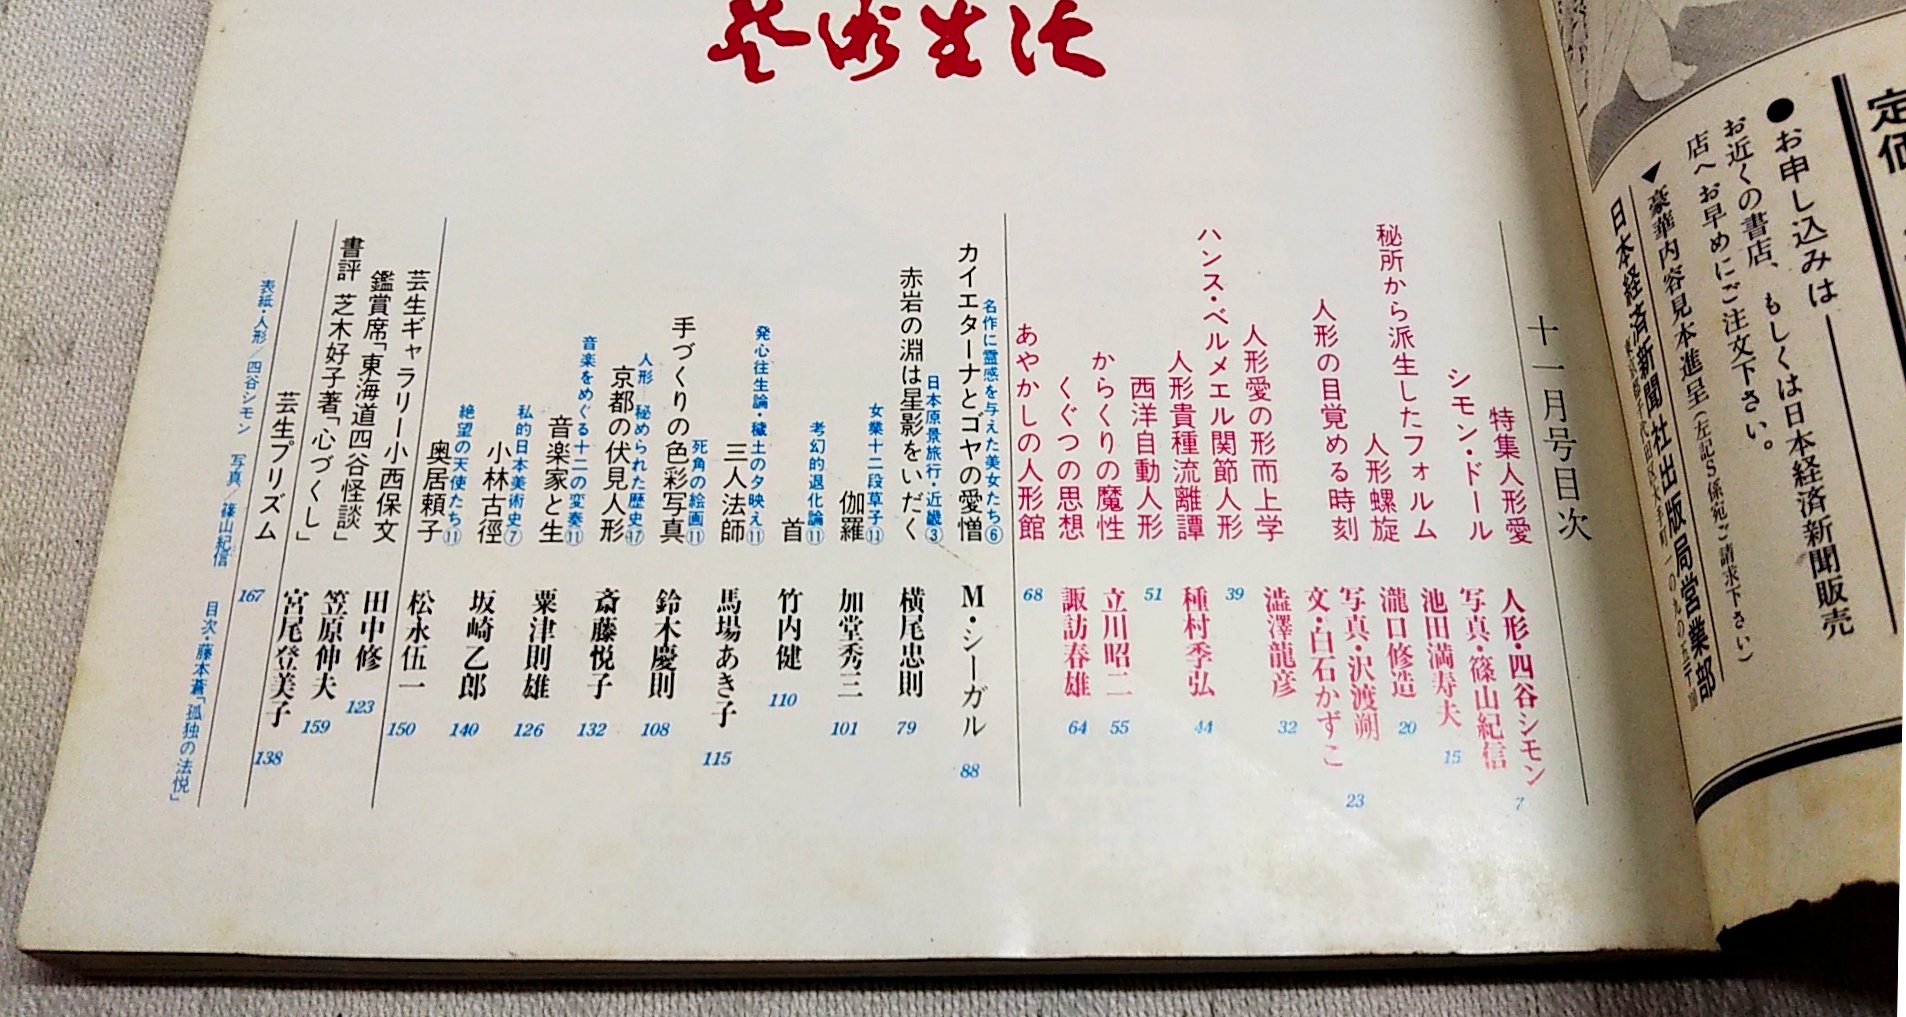 藝術生活
十一月号目次
特集人形愛
シモン・ドール
人形・四谷シモン
写真・篠山紀信
7
人形螺旋
池田満寿夫
15
秘所から派生したフォルム
瀧口修造
20
人形の目覚める時刻
写真・沢渡朔
文・白石かずこ
23
人形愛の形而上学
澁澤龍彦
32
ハンス・ベルメエル関節人形
39
人形貴種流離譚
種村季弘
44
西洋自動人形
51
からくりの魔性
立川昭二
55
くぐつの思想
諏訪春雄
64
あやかしの人形館
68
名作に霊感を与えた美女たち⑥
カイエターナとゴヤの愛憎
M・シーガル
88
日本原景旅行・近畿③
赤岩の淵は星影をいだく
横尾忠則
79
女業十二段草子⑪
伽羅
加堂秀三
101
考幻的退化論⑪
首
竹内健
110
発心往生論・穢土の夕映え⑪
三人法師
馬場あき子
115
死角の絵画⑪
手づくりの色彩写真
鈴木慶則
108
人形―秘められた歴史⑰
京都の伏見人形
斎藤悦子
132
音楽をめぐる十二の変奏⑪
音楽家と生
粟津則雄
126
私的日本美術史⑦
小林古徑
坂崎乙郎
140
絶望の天使たち⑪
奥居頼子
松永伍一
150
芸生ギャラリー 小西保文
田中修
123
鑑賞席「東海道四谷怪談」
笠原伸夫
159
書評 芝木好子著「心づくし」
宮尾登美子
138
芸生プリズム
167
表紙・人形/四谷シモン 写真/篠山紀信
目次・藤本蒼「孤独の法悦」
定価
●お申し込みは
お近くの書店、もしくは日本経済新聞販売
店へお早めにご注文下さい。
▼豪華内容見本進呈(左記S係宛ご請求下さい)
日本経済新聞社出版局営業部